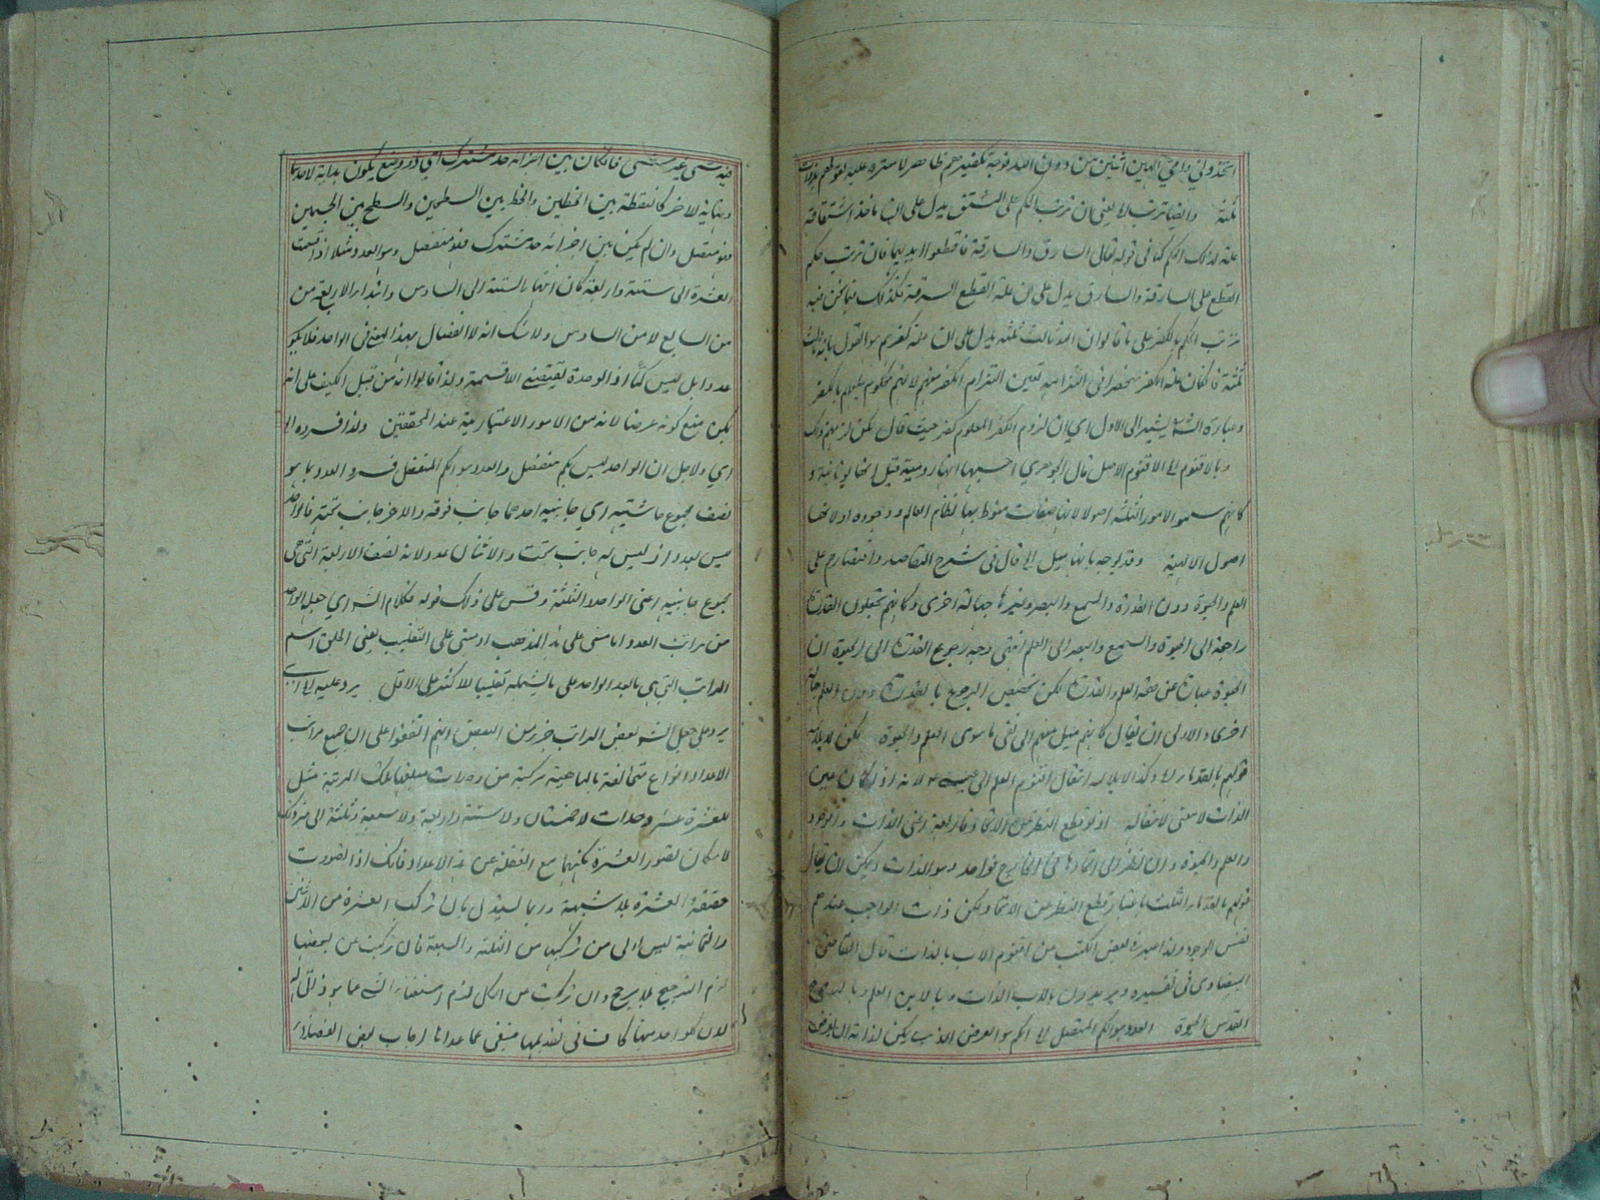 اتخذوني وامي الهين اثنين من دون الله فوجه تكفيرهم ظاهر لا سترة عليه
ثلثة وايضا ترتب لا يعني ان ترتب الحكم على المشتق يدل على ان ماخذ اشتقاقه
علة لذلك الحكم كما في قوله تعالى السارق والسارقة فاقطعوا ايديهما فان ترتب حكم
القطع على السارقة والسارق يدل على ان علة القطع السرقة فكذلك فيما نحن فيه
ترتب الحكم بالكفر على ما قالوا ان الله ثالث ثلثة يدل على ان علة كفرهم هو القول بانه ثالث
ثلثة فان كان علة الكفر منحصرا في التزامه تعين التزام الكفر منهم لانهم محكوم عليهم بالكفر
وعبارة الش يشير الى الاول اي ان لزوم الكفر المعلوم كفر حيث قال لكن لزمهم ذلك
وبالاقنوم الخ الاقنوم الاصل قال الجوهري احسبها انها رومية قيل انها يونانية و
كانهم سموا الامور الثلثة اصولا لانها صفات منوط بها نظام العالم ووجوده او لانها
اصول الالهية وقد يوجه بانها ميل الخ قال في شرح المقاصد واقتصارهم على
العلم والحيوة دون القدرة والسمع والبصر وغيرها جهالة اخرى وكانهم يجعلون القدرة
راجعة الى الحيوة والسمع والبصر الى العلم انتهى وجه رجوع القدرة الى الحيوة ان
الحيوة عبارة عن صحة العلم والقدرة لكن تخصيص الرجوع بالقدرة دون العلم جهالة
اخرى والاولى ان يقال كانهم ميل منهم الى نفي ما سوى العلم والحيوة لكن لا يلائمه
قولهم بالقدماء وكذا لا يلائمه انتقال اقنوم العلم الى عيسى ع م لانه اذا كان عين
الذات لا معنى لانتقاله اذ لو قطع النظر عن الاتحاد فاربعة اعني الذات والوجود
والعلم والحيوة وان نظر الى اتحادها في الخارج فواحد وهو الذات ويمكن ان يقال
قولهم بالقدماء الثلث باعتبار قطع النظر عن الاتحاد ولكن ذات الواجب عندهم
نفس الوجود ولذا عبر في بعض الكتب من اقنوم الاب بالذات قال القاضي
البيضاوي في تفسيره ويريدون بالاب الذات وبالابن العلم وبالروح
القدس الحيوة العدد هو الكم المنفصل الخ الكم هو العرض الذي يمكن لذاته ان يفرض
فيه شيء غير شيء فان كان بين اجزائه حد مشترك اي ذو وضع يكون بداية لاحدهما
ونهاية لاخر كالنقطة بين الخطين والخط بين السطحين والسطح بين الجسمين
فهو متصل وان لم يكن بين اجزائه حد مشترك فهو منفصل وهو العدد مثلا اذا قسمت
العشرة الى ستة واربعة كان انتهاء الستة الى السادس وابتداء الاربعة من
من السابع لا من السادس ولا شك انه لا انفصال بهذا المعنى في الواحد فلا يكون
عددا بل ليس كما اذ الوحدة تقتضي اللاقسمة ولذا قالوا انه من قبيل الكيف على انه
يمكن منع كونه عرضا لانه من الامور الاعتبارية عند المحققين ولذا فسروه الخ
اي ولاجل ان الواحد ليس بكم منفصل والعدد هو الكم المنفصل فسروا العدد بما هو
نصف مجموع حاشيتيه اي جانبيه احدهما جانب فوقه والاخر جانب تحته فالواحد
ليس بعدد اذ ليس له جانب تحت والاثنان عدد لانه نصف الاربعة التي هي
مجموع جانبيه اعني الواحد والثلثة وقس على ذلك قوله فكلام الش اي جعل الواحد
من مراتب العدد اما مبني على هذا المذهب او مبني على التغليب يعني اطلق اسم
المراتب التي هي ما بعد الواحد على ما يشمله تغليبا للاكثر على الاقل يرد عليه الخ اي
يرد على جعل الش بعض المراتب جزء من البعض انهم اتفقوا على ان جميع مراتب
الاعداد انواع متخالفة بالماهية مركبة من وحدات مبلغها تلك المرتبة مثل
للعشرة عشر وحدات لا خمستان ولا ستة واربعة ولا سبعة وثلثة الى غير ذلك
لامكان تصور العشرة بكنهها مع الغفلة عن هذه الاعداد فانك اذا تصورت
حقيقة العشرة بلا شبهة وربما يستدل بان تركب العشرة من الاثنين
والثمانية ليس اولى من تركبها من الثلثة والسبعة فان تركبت عن بعضها
لزم الترجيح بلا مرجح وان تركبت من الكل لزم استغناء الشيء عما هو ذاتي له
لان كل واحد منها كاف في تقويمها فيستغني عما عداه اجاب بعض الفضلاء